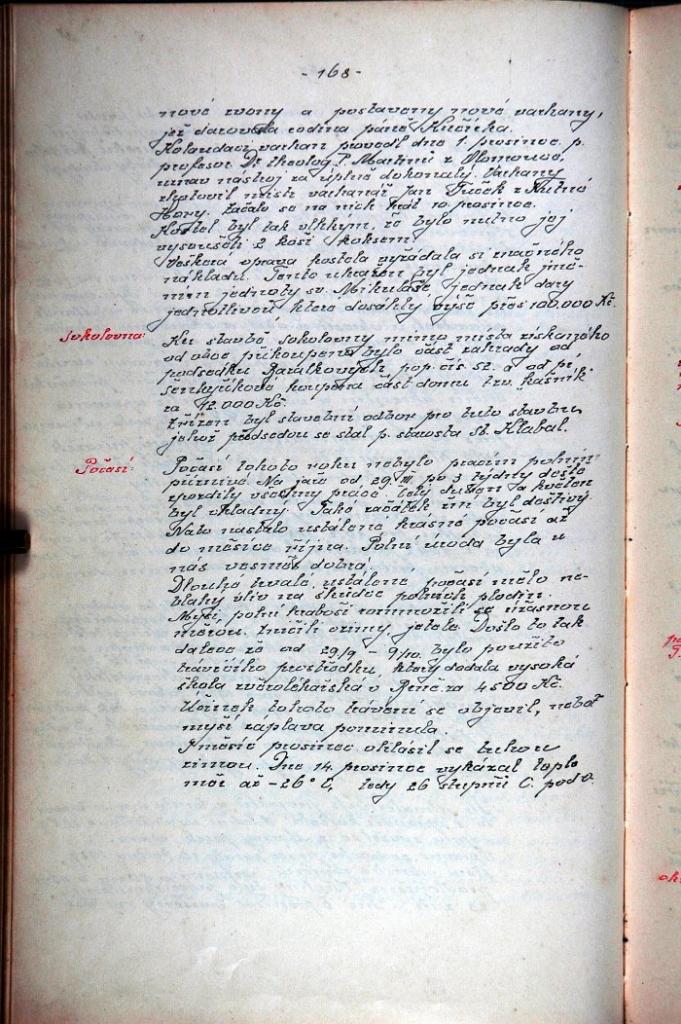 - 168 -
nové zvony a postaveny nové varhany,
jež darovala rodina páně Kučírka.
Kolaudaci varhan provedl dne 1. prosince p.
profesor Dr theolog P. Martinů z Olomouce,
uznav nástroj za úplně dokonalý. Varhany
zhotovil mistr varhanář Jan Tuček z Kutné
Hory. Začalo se na nich hrát 10. prosince.
Kostel byl tak vlhkým, že bylo nutno jej
vysoušeti 2 koši s koksem.
Veškerá oprava kostela vyžádala si značného
nákladu. Tento uhrazen byl jednak jmě-
ním jednoty sv. Mikuláše jednak dary
jednotlivců, které dosáhly výše přes 100.000 Kč.
Sokolovna: Ku stavbě sokolovny mimo místa získaného
od obce přikoupena bylo část zahrady od
podsedku popis. čís. 52. a od
koupena část domu zv. "
za 42.000 Kč.
Zřízen byl stavební odbor pro tuto stavbu,
jehož předsedou se stal p. starosta St. Klabal.
Počasí: Počasí tohoto roku nebylo pracím polním
příznivo. Na jaře od 29. III. po 3 týdny deště
zpozdily všechny práce. Celý duben a květen
byl chladný. Také začátek byl deštivý.
Nato nastalo ustálené krásné počasí až
do měsíce října. Polní úroda byla u
nás vesměs dobrá.
Dlouho trvalé, ustálené počasí mělo ne-
blahý vliv na škůdce polních plodin.
Myši, polní hraboši rozmnožili se úžasnou
měrou. Zničili oziny, jetele. Došlo to tak
dalece že od 29/9 - 9/10. bylo použito
trávicího prostředku, který dodala vysoká
škola zvěrolékařská v Brně za 4500 Kč.
Účinek tohoto trávení se objevil, neboť
myší záplava pominula.
Měsíc prosinec ohlásil se tuhou
zimou. Dne 14. prosince vykázal teplo-
měr až -26° C, tedy 26 stupňů C. pod 0.